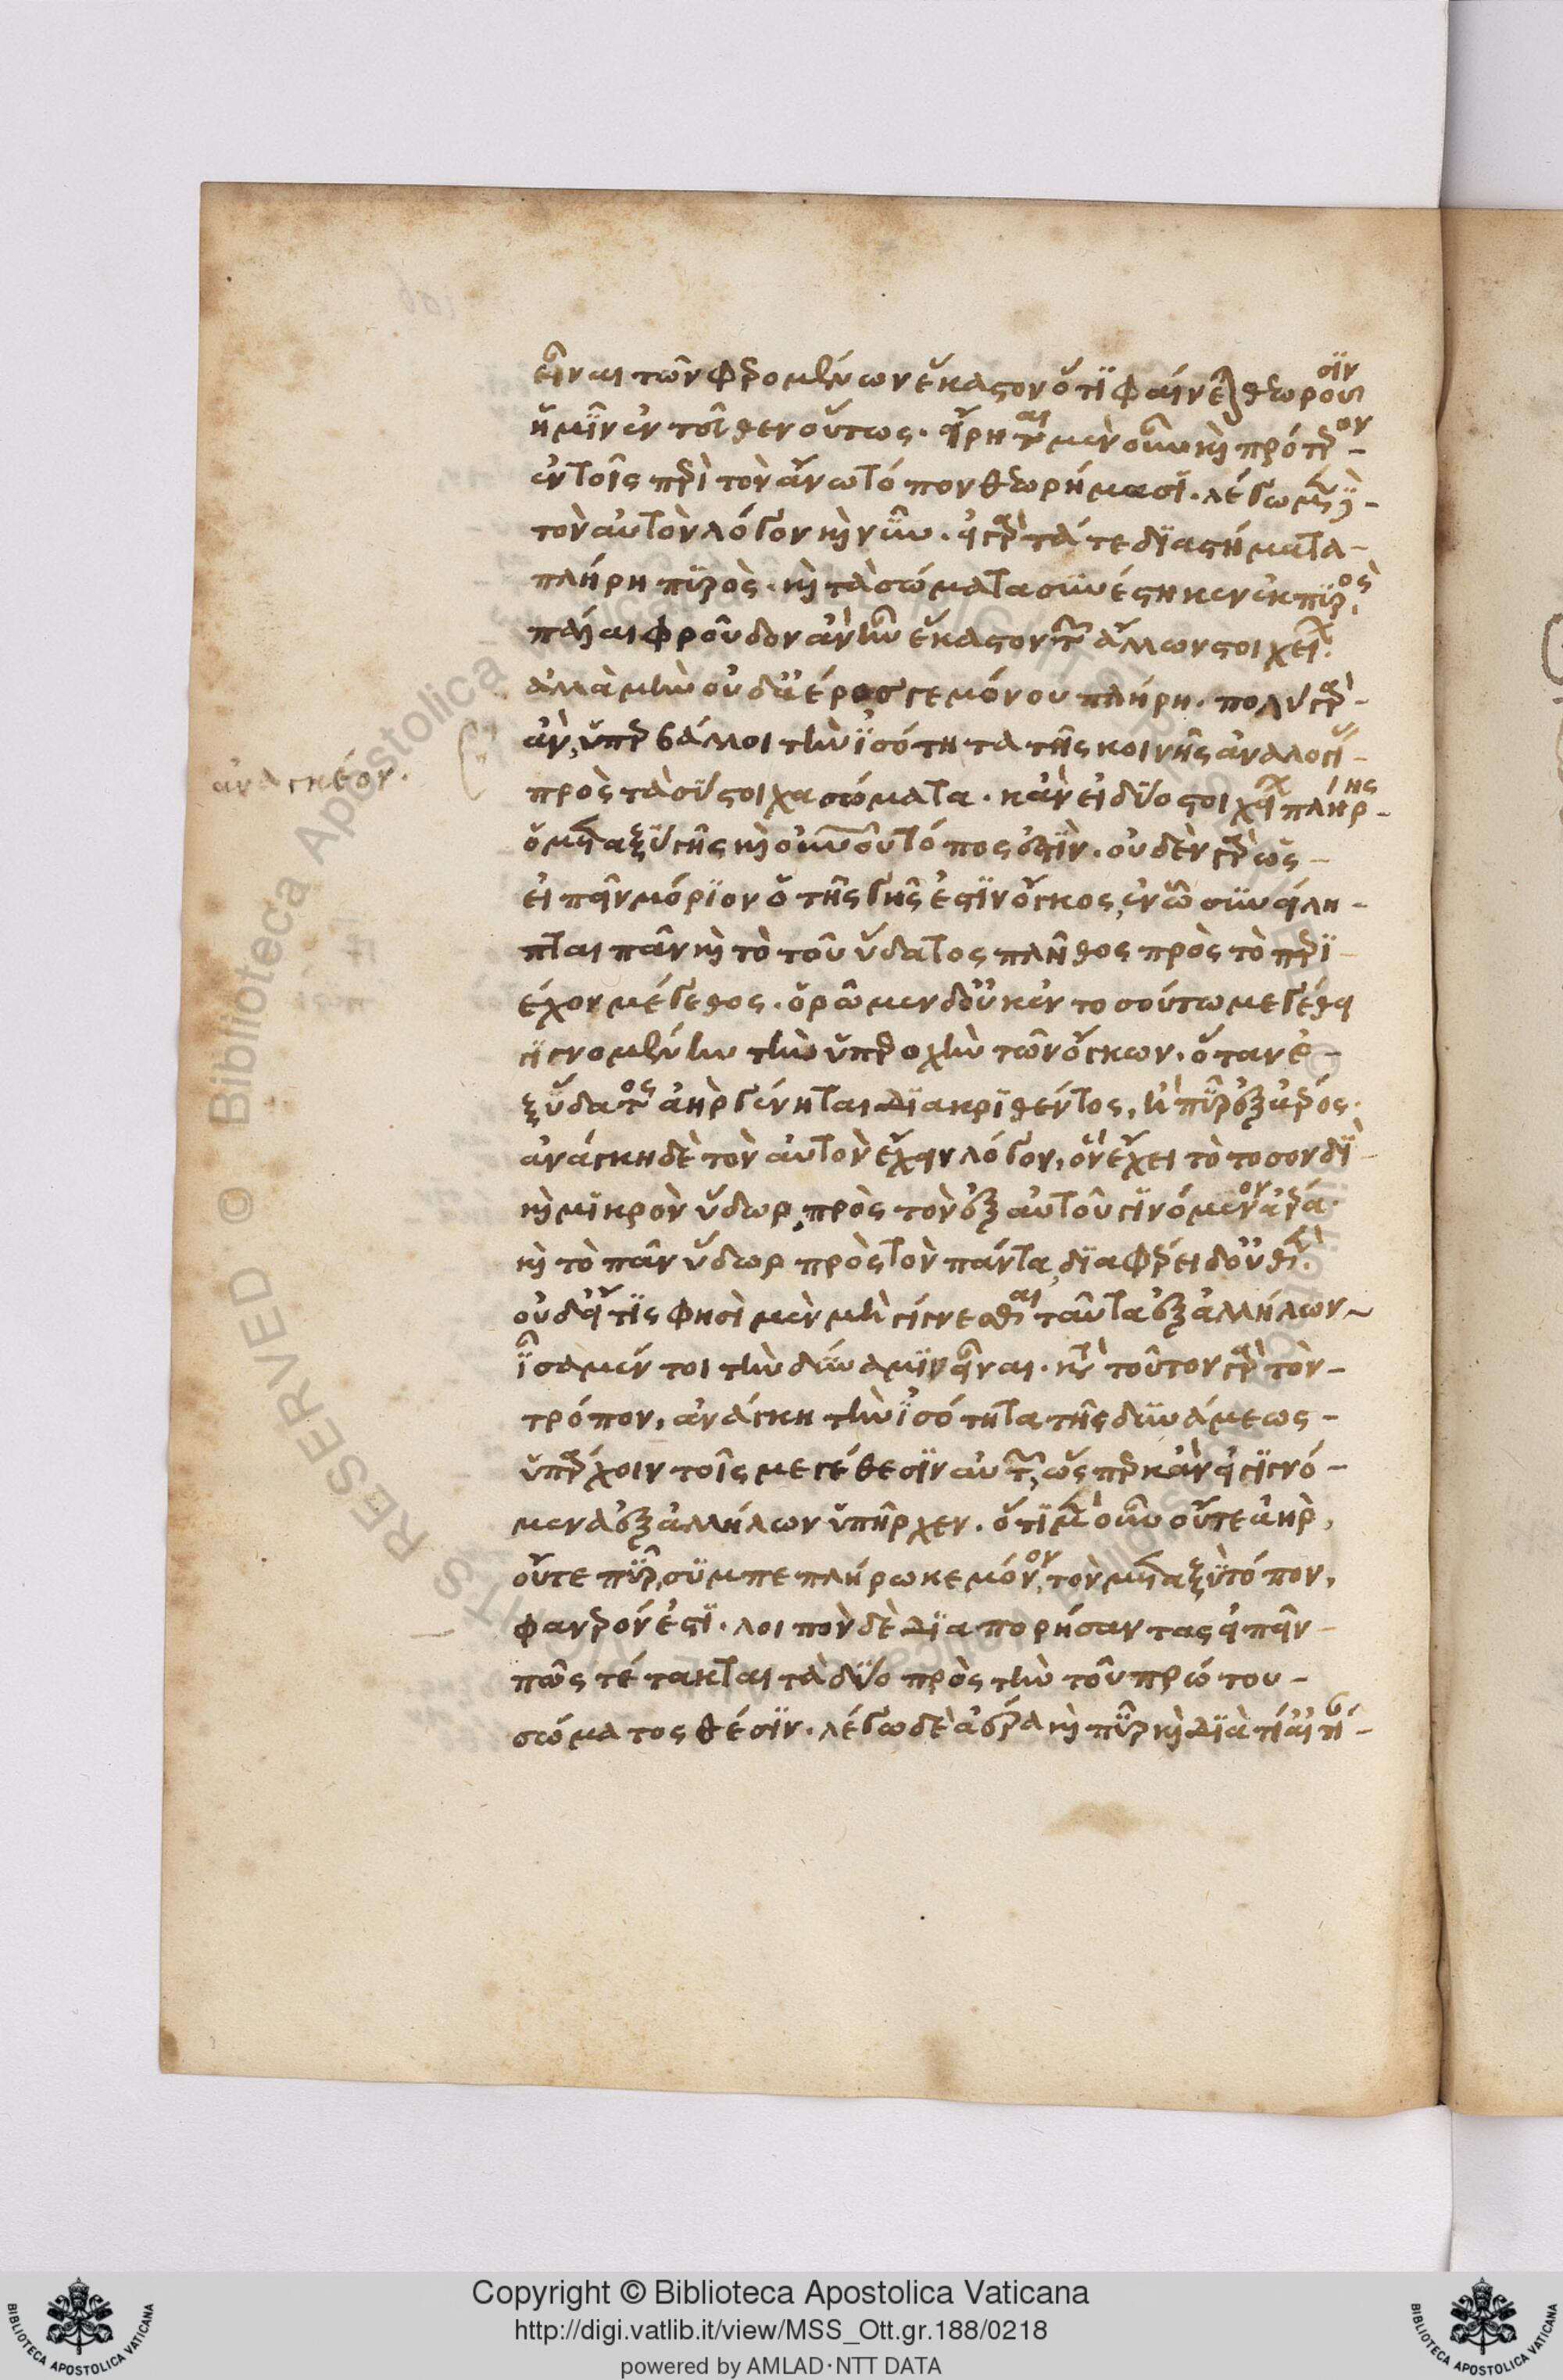 εἶναι τῶν φερομένων ἕκαστον ὅτι φαίνεται θεωροῦσιν
ἡμῖν ἐντεῦθεν οὕτως. εἴρηται μὲν οὖν καὶ πρότερον
ἐν τοῖς περὶ τὸν ἄνω τόπον θεωρήμασι. λέγωμεν δὲ
τὸν αὐτὸν λόγον καὶ νῦν. εἰ γὰρ τά τε διαστήματα
πλήρη πυρὸς. καὶ τὰ σώματα συνέστηκεν ἐκ πυρὸς,
πάλαι φροῦδον ἂν ἦν ἕκαστον τῶν ἄλλων στοιχείων.
ἀλλὰ μὴν οὐδ' ἀέρος γε μόνου πλήρη. πολὺ γὰρ
ἂν, ὑπερβάλλοι τὴν ἰσότητα τῆς κοινῆς ἀναλογίας
ἀναγκέον.
πρὸς τὰ σύστοιχα σώματα. κἂν εἰ δύο στοιχείων πλήρης
ὁ μεταξὺ γῆς καὶ οὐνοῦ τόπος ἐστίν. οὐδὲν γὰρ ὡς
εἰπεῖν μόριον ὁ τῆς γῆς ἐστὶν ὄγκος, ἐν ᾧ συνείλη
πται πᾶν καὶ τὸ τοῦ ὕδατος πλῆθος πρὸς τὸ περι
έχον μέγεθος. ὁρῶμεν δ' οὐκ ἐν τοσούτω μεγέθει
γιγνομένην τὴν ὑπεροχὴν τῶν ὄγκων. ὅταν ἐ
ξ ὕδατος ἀὴρ γένηται διακριθέντος, ἢ πῦρ ἐξ ἀέρος.
ἀνάγκη δὲ τὸν αὐτὸν ἔχειν λόγον, ὃν ἔχει τὸ τοσονδὶ
καὶ μικρὸν ὕδωρ, πρὸς τὸν ἐξ αὐτοῦ γινόμενον ἀέρα.
καὶ τὸ πᾶν ὕδωρ πρὸς τὸν πάντα, διαφέρει δ' οὐθὲν.
οὐδ' εἴ τις φησὶ μὲν μὴ γίγνεσθαι ταῦτα ἐξ ἀλλήλων
ἴσα μέν τοι τὴν δύναμιν εἶναι. κατὰ τοῦτον γὰρ τὸν
τρόπον, ἀνάγκη τὴν ἰσότητα τῆς δυνάμεως
ὑπάρχειν τοῖς μεγέθεσιν αὐτῶν, ὥσπερ κἂν εἰ γιγνό
μενα ἐξ ἀλλήλων ὑπῆρχεν. ὅτι μὲν οὖν οὔτε ἀὴρ,
οὔτε πῦρ, συμπεπλήρωκε μόνον, τὸν μεταξὺ τόπον,
φανερόν ἐστι. λοιπὸν δὲ διαπορήσαντας εἰπεῖν
πῶς τέτακται τὰ δύο πρὸς τὴν τοῦ πρώτου
σώματος θέσιν. λέγω δὲ ἀέρα καὶ πῦρ καὶ διὰ τίν' αἰτί
Copyright © Biblioteca Apostolica Vaticana
http://digi.vatlib.it/view/MSS_Ott.gr.188/0218
powered by AMLAD·NTT DATA
BIBLIOTECA APOSTOLICA VATICANA
BIBLIOTECA APOSTOLICA VATICANA